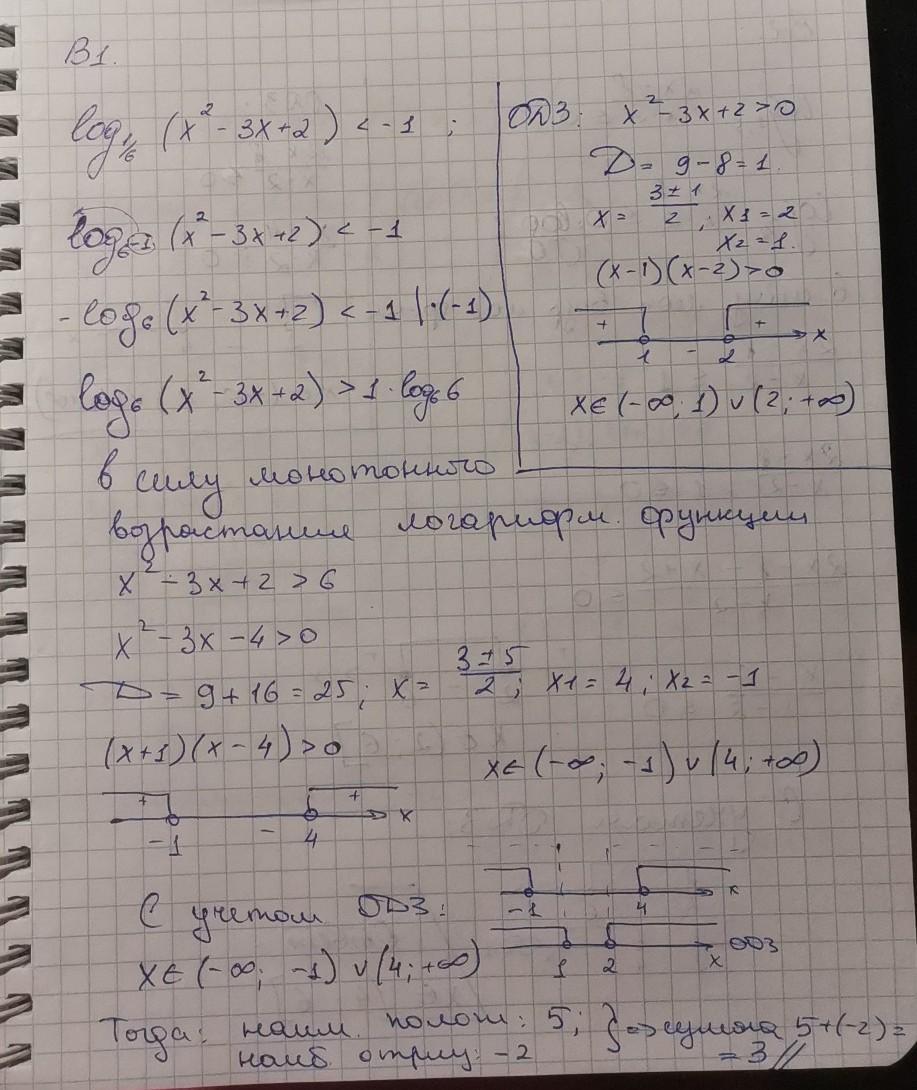 В1.
log₁/₆ (x² - 3x + 2) < -1 ;
log₆₋₁ (x² - 3x + 2) < -1
- log₆ (x² - 3x + 2) < -1 | · (-1)
log₆ (x² - 3x + 2) > 1 · log₆6
ОДЗ: x² - 3x + 2 > 0
D = 9 - 8 = 1.
x = (3 ± 1)/2 ; x1 = 2
x2 = 1.
(x-1)(x-2) > 0
+ - + x
1 2
x ∈ (-∞; 1) ∨ (2; +∞)
в силу монотонного
возрастания логарифм. функции
x² - 3x + 2 > 6
x² - 3x - 4 > 0
D = 9 + 16 = 25; x = (3 ± 5)/2 ; x1 = 4; x2 = -1
(x+1)(x-4) > 0
x ∈ (-∞; -1) ∨ (4; +∞)
+ - + x
-1 4
С учетом ОДЗ:
-1 4 x
1 2 x ОДЗ
x ∈ (-∞; -1) ∨ (4; +∞)
Тогда: наим. полож: 5; } => сумма 5+(-2) =
наиб отриц: -2 = 3 //